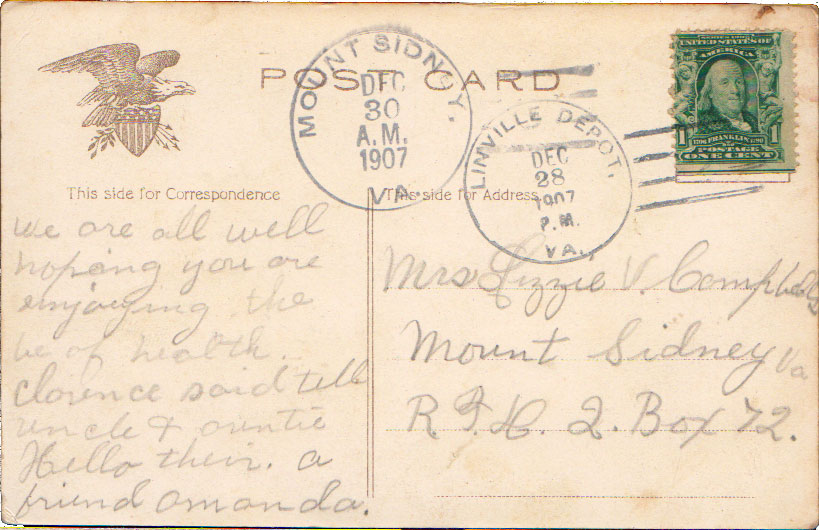 POST CARD
MOUNT SIDNEY,
DEC
30
A.M.
1907
VA.
LINVILLE DEPOT,
DEC
28
1907
P.M.
VA.
UNITED STATES OF
AMERICA
1 1
1706 FRANKLIN 1790
POSTAGE
ONE CENT
This side for Correspondence
This side for Address
we are all well
hoping you are
enjoying the
be of health.
Clarence said tell
uncle & auntie
Hello their. a
friend Amanda.
Mrs Lizzie V. Campbell
Mount Sidney Va
R. F. D. 2. Box 72.